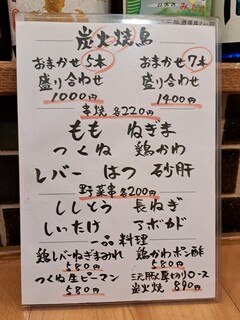 炭火焼鳥
おまかせ5本 おまかせ7本
盛り合わせ 盛り合わせ
1000円 1400円
串焼 各220円
もも ねぎま
つくね 鶏かわ
レバー はつ 砂肝
野菜串 各200円
ししとう 長ねぎ
しいたけ アボカド
一品料理
鶏レバーねぎまみれ 鶏かわポン酢
580円 580円
つくね生ピーマン 三元豚厚切りロース
580円 炭火焼 890円